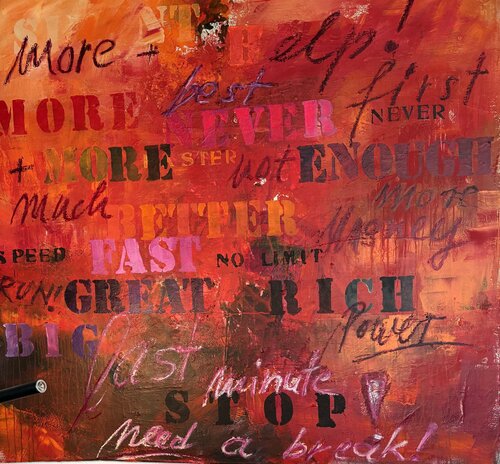 more + elp!
best first
MORE NEVER NEVER
+ MORE STER not ENOUGH
much more
BETTER Money
SPEED FAST NO LIMIT
RUN! GREAT RICH
BIG Power
last minute
STOP!
need a break!